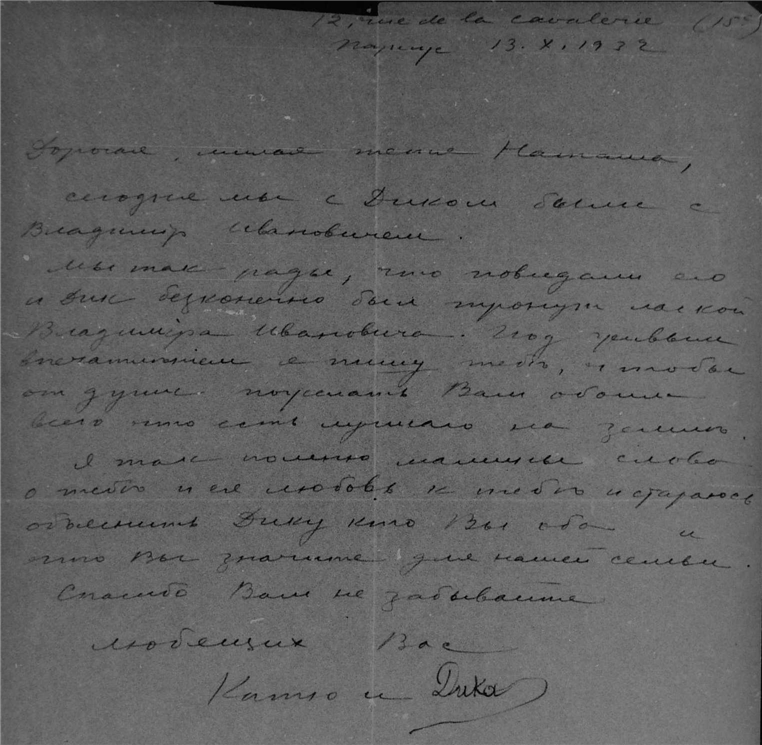 12, rue de la Cavalerie (15e)
Париж 13.X.1932
Дорогая, милая тетя Наташа,
сегодня мы с Диком были с
Владимiр Ивановичем.
Мы так рады, что повидали его
и Дик безконечно был тронут лаской
Владимiра Ивановича. Под живым
впечатлѣнием я пишу тебѣ, чтобы
от души пожелать Вам обоим
всего что есть лучшаго на землѣ.
Я так помню мамины слова
о тебѣ и ея любовь к тебѣ и стараюсь
объяснить Дику кто Вы оба и
что Вы значите для нашей семьи.
Спасибо Вам не забывайте
любящих Вас
Катю и Дика